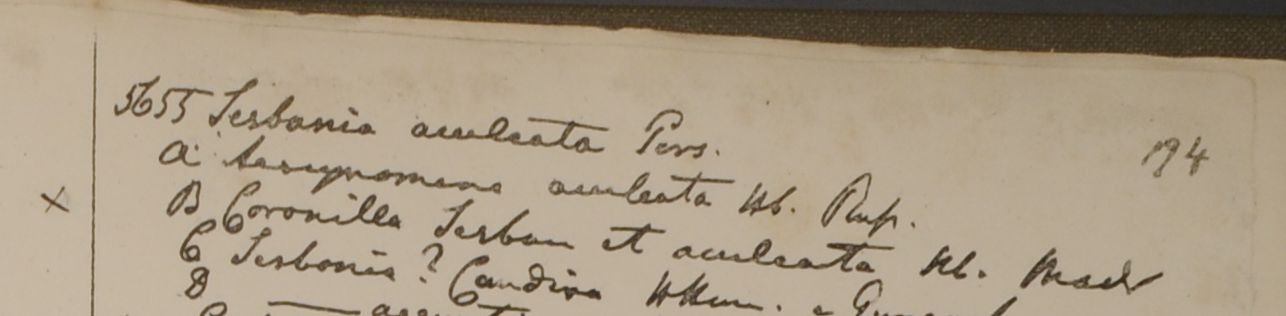 5655 Sesbania aculeata Pers.
194
a Aeschynomene aculeata Hb. Rup.
B Coronilla Sesban et aculeata Hb. Madr
C Sesbania ? Candiva
D